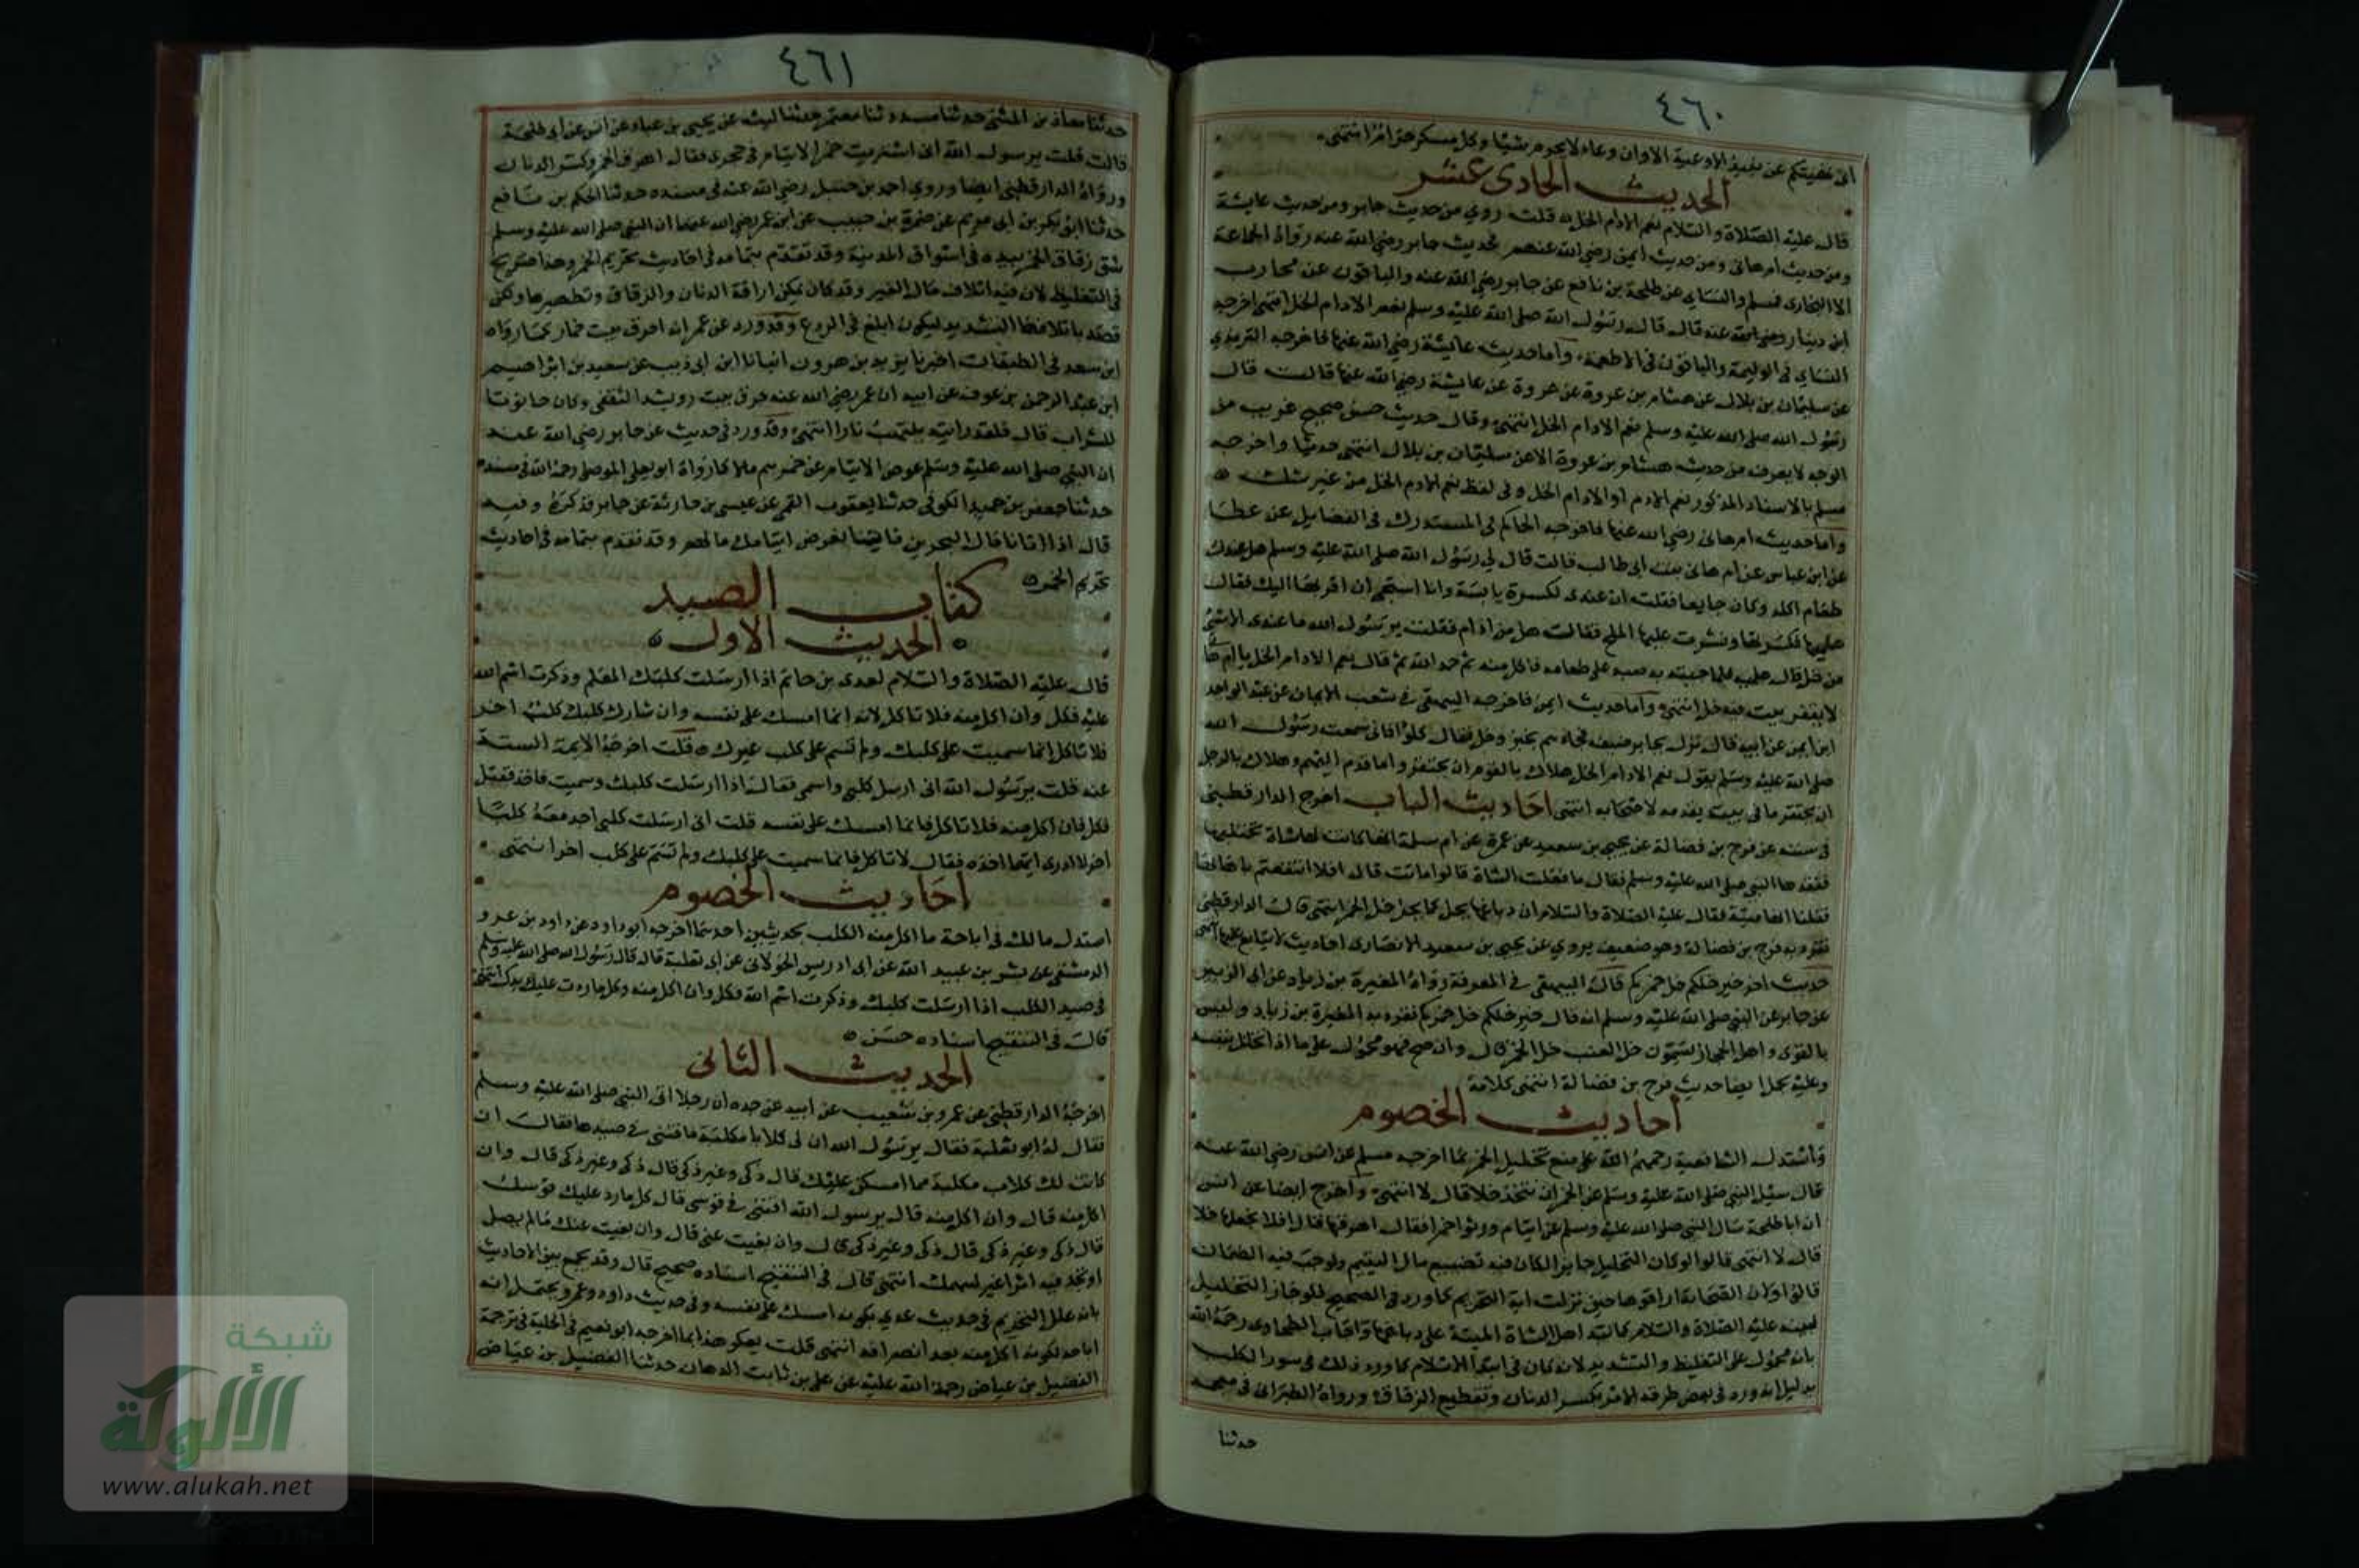 ٤٦٠
انى نهيتكم عن نبيذ الاوعية الا وان وعاء لا يحرم شيئا وكل مسكر حرام انتهى
الحديث الحادى عشر
قال عليه الصلاة والسلام نعم الادام الخل قلت روي من حديث جابر ومن حديث عايشة
ومن حديث ام هانى ومن حديث ايمن رضي الله عنهم فحديث جابر رضي الله عنه رواه الجماعة
الا البخارى فمسلم والنساى عن طلحة بن نافع عن جابر رضي الله عنه والباقون عن محارب
ابن دينار رضي الله عنه قال قال رسول الله صلى الله عليه وسلم نعم الادام الخل انتهى اخرجه
النساى فى الوليمة والباقون فى الاطعمة واما حديث عائشة رضي الله عنها فاخرجه الترمذي
عن سليمان بن بلال عن هشام بن عروة عن عروة عن عايشة رضي الله عنها قالت قال
رسول الله صلى الله عليه وسلم نعم الادام الخل انتهى وقال حديث حسن صحيح غريب من
الوجه لا يعرف من حديث هشام بن عروة الا من سليمان بن بلال انتهى واخرجه
مسلم بالاسناد المذكور نعم الادم او الادام الخل وفى لفظ نعم الادم الخل من غير شك
واما حديث ام هانى رضي الله عنها فاخرجه الحاكم فى المستدرك فى الفضايل عن عطا
عن ابن عباس عن ام هانى بنت ابى طالب قالت قال لي رسول الله صلى الله عليه وسلم هل عندك
طعام اكله وكان جايعا فقلت ان عندى لكسرة يابسة وانا استحى ان اقربها اليك فقال
هلميها فكسرتها ونثرت عليها الملح فقال هل من ادام فقلت يرسول الله ما عندى الا شئ
من خل قال هلميه فلما جئته به صبه على طعامه فاكل منه ثم حمد الله ثم قال نعم الادام الخل يا ام هانى
لا يفقر بيت فيه خل انتهى واما حديث ايمن فاخرجه البيهقى فى شعب الايمان عن عبد الواحد
ابن ايمن عن ابيه قال نزل بجابر ضيف فجاءهم بخبز وخل فقال كلوا فانى سمعت رسول الله
صلى الله عليه وسلم يقول نعم الادام الخل هلاك بالقوم ان يحتقروا ما قدم اليهم وهلاك بالرجل
ان يحتقر ما فى بيته يقدمه لاصحابه انتهى احاديث الباب اخرج الدارقطنى
فى سننه عن فرج بن فضالة عن يحيى بن سعيد عن عمرة عن ام سلمة انها كانت لها شاة تحتلبها
ففقدها النبى صلى الله عليه وسلم فقال ما فعلت الشاة قالوا ماتت قال افلا انتفعتم باهابها
فقلنا انها ميتة فقال عليه الصلاة والسلام ان دباغها يحل كما يحل خل الخمر انتهى قال الدارقطنى
تفرد به فرج بن فضالة وهو ضعيف يروي عن يحيى بن سعيد الانصارى احاديث لا يتابع عليها انتهى
حديث اخر خير خلكم خل خمركم قال البيهقى فى المعرفة رواه المغيرة بن زياد عن ابى الزبير
عن جابر عن النبى صلى الله عليه وسلم انه قال خير خلكم خل خمركم تفرد به المغيرة بن زياد وليس
بالقوى واهل الحجاز يسمون خل العنب خل الخمر قال وان صح فهو محمول على ما اذا تخلل بنفسه
وعليه يحمل ايضا حديث فرج بن فضالة انتهى كلامه
احاديث الخصوم
واستدل الشافعية رحمهم الله على منع تخليل الخمر بما اخرجه مسلم عن انس رضي الله عنه
قال سئل النبى صلى الله عليه وسلم عن الخمر ان تتخذ خلا قال لا انتهى واخرج ايضا عن انس
ان ابا طلحة سال النبى صلى الله عليه وسلم عن ايتام ورثوا خمرا فقال اهرقها قال افلا نجعلها خلا
قال لا انتهى قالوا لو كان التخليل جايزا لكان فيه تضييع مال اليتيم ولوجب فيه الضمان
قالوا ولان الصحابة اراقوها حين نزلت اية التحريم كما ورد فى الصحيح فلو جاز التخليل
لبينه عليه الصلاة والسلام كما نبه اهل الشاة الميتة على دباغها واجاب الطحاوى رحمه الله
بانه محمول على التغليظ والتشديد لانه كان فى ابتدا الاسلام كما ورد ذلك فى سور الكلب
بدليل انه ورد فى بعض طرقه الامر بكسر الدنان وتقطيع الزقاق ورواه الطبرانى فى معجمه
حدثنا
٤٦١
حدثنا معاذ بن المثنى حدثنا مسدد ثنا معتمر حدثنا ليث عن يحيى بن عباد عن انس عن ابى طلحة
قالت قلت يرسول الله انى اشتريت خمرا لايتام فى حجرى فقال اهرق الخمر وكسر الدنان
ورواه الدارقطنى ايضا وروى احمد بن حنبل رضي الله عنه فى مسنده حدثنا الحكم بن نافع
حدثنا ابو بكر بن ابى مريم عن ضمرة بن حبيب عن ابن عمر رضي الله عنهما ان النبى صلى الله عليه وسلم
شق زقاق الخمر بيده فى اسواق المدينة وقد تقدم بتمامه فى احاديث تحريم الخمر وهذا صريح
فى التغليظ لان فيه اتلاف مال الغير وقد كان يمكن اراقة الدنان والزقاق وتطهيرها ولكن
قصد باتلافها التشديد ليكون ابلغ فى الردع وقد ورد عن عمر انه احرق بيت خمار كما رواه
ابن سعد فى الطبقات اخبرنا يزيد بن هرون انبانا ابن ابى ذيب عن سعيد بن ابراهيم
ابن عبد الرحمن بن عوف عن ابيه ان عمر رضي الله عنه حرق بيت رويشد الثقفى وكان حانوتا
للشراب قال فلقد رايته يلتهب نارا انتهى وقد ورد فى حديث عن جابر رضي الله عنه
ان النبى صلى الله عليه وسلم عوض الايتام عن خمرهم مالا كما رواه ابو يعلى الموصلى رحمه الله فى مسنده
حدثنا جعفر بن حميد الكوفى حدثنا يعقوب القمى عن عيسى بن جارية عن جابر فذكره وفيه
قال اذا اتانا مال البحرين فاتينا نعوض ايتامك مالهم وقد تقدم بتمامه فى احاديث
تحريم الخمر
كتاب الصيد
الحديث الاول
قال عليه الصلاة والسلام لعدى بن حاتم اذا ارسلت كلبك المعلم وذكرت اسم الله
عليه فكل وان اكل منه فلا تاكل لانه انما امسك على نفسه وان شارك كلبك كلب اخر
فلا تاكل انما سميت على كلبك ولم تسم على كلب غيرك قلت اخرجه الايمة الستة
عنه قلت يرسول الله انى ارسل كلبى واسمى فقال اذا ارسلت كلبك وسميت فاخذ فقتل
فكل فان اكل منه فلا تاكل فانما امسك على نفسه قلت انى ارسلت كلبى اجد معه كلبا
اخر لا ادرى ايهما اخذه فقال لا تاكل فانما سميت على كلبك ولم تسم على كلب اخر انتهى
احاديث الخصوم
استدل مالك فى اباحة ما اكل منه الكلب بحديثين احدهما اخرجه ابو داود عن داود بن عمرو
الدمشقى عن بسر بن عبيد الله عن ابى ادريس الخولانى عن ابى ثعلبة قال قال رسول الله صلى الله عليه وسلم
فى صيد الكلب اذا ارسلت كلبك وذكرت اسم الله فكل وان اكل منه وكل ما ردت عليك يدك انتهى
قال فى التنقيح اسناده حسن
الحديث الثانى
اخرجه الدارقطنى عن عمرو بن شعيب عن ابيه عن جده ان رجلا اتى النبى صلى الله عليه وسلم
فقال له ابو ثعلبة فقال يرسول الله ان لى كلابا مكلبة فافتنى فى صيدها فقال ان
كانت لك كلاب مكلبة فكل مما امسكن عليك قال ذكى وغير ذكى قال ذكى وغير ذكى قال وان
اكل منه قال وان اكل منه قال يرسول الله افتنى فى قوسى قال كل ما رد عليك قوسك
قال ذكى وغير ذكى قال ذكى وغير ذكى قال وان تغيب عنى قال وان تغيب عنك ما لم يصل
او تجد فيه اثرا غير سهمك انتهى قال فى التنقيح اسناده صحيح قال وقد يجمع بين الاحاديث
بانه علل التحريم فى حديث عدي بكونه امسك على نفسه وفى حديث داود وعمرو يحتمل انه
اباحه لكونه اكل منه بعد انصرافه انتهى قلت يعكر هذا بما اخرجه ابو نعيم فى الحلية فى ترجمة
الفضيل بن عياض رحمة الله عليه عن على بن ثابت الدهان حدثنا الفضيل بن عياض
شبكة
الألوكة
www.alukah.net